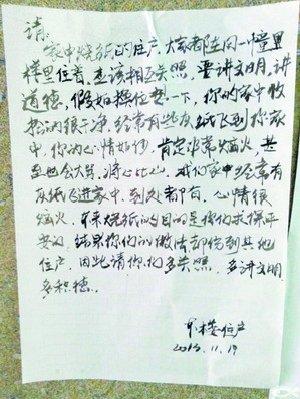 请
家中烧纸的住户,大家都在同一幢里
楼里住着,应该相互关照,要讲文明,讲
道德,假如换位想一下,你的家中收
拾的很干净,经常有些灰纸飞到你家
中,你的心情如何,肯定非常烦火,甚
至也会大骂,将心比心,我们家中经常有
灰纸飞进家中,到处都有,心情很
烦火,本来烧纸的目的是你们求保平
安的,结果你们的做法却伤到其他
住户,因此请你们多关照,多讲文明,
多积德。
楼住户
2013.11.19